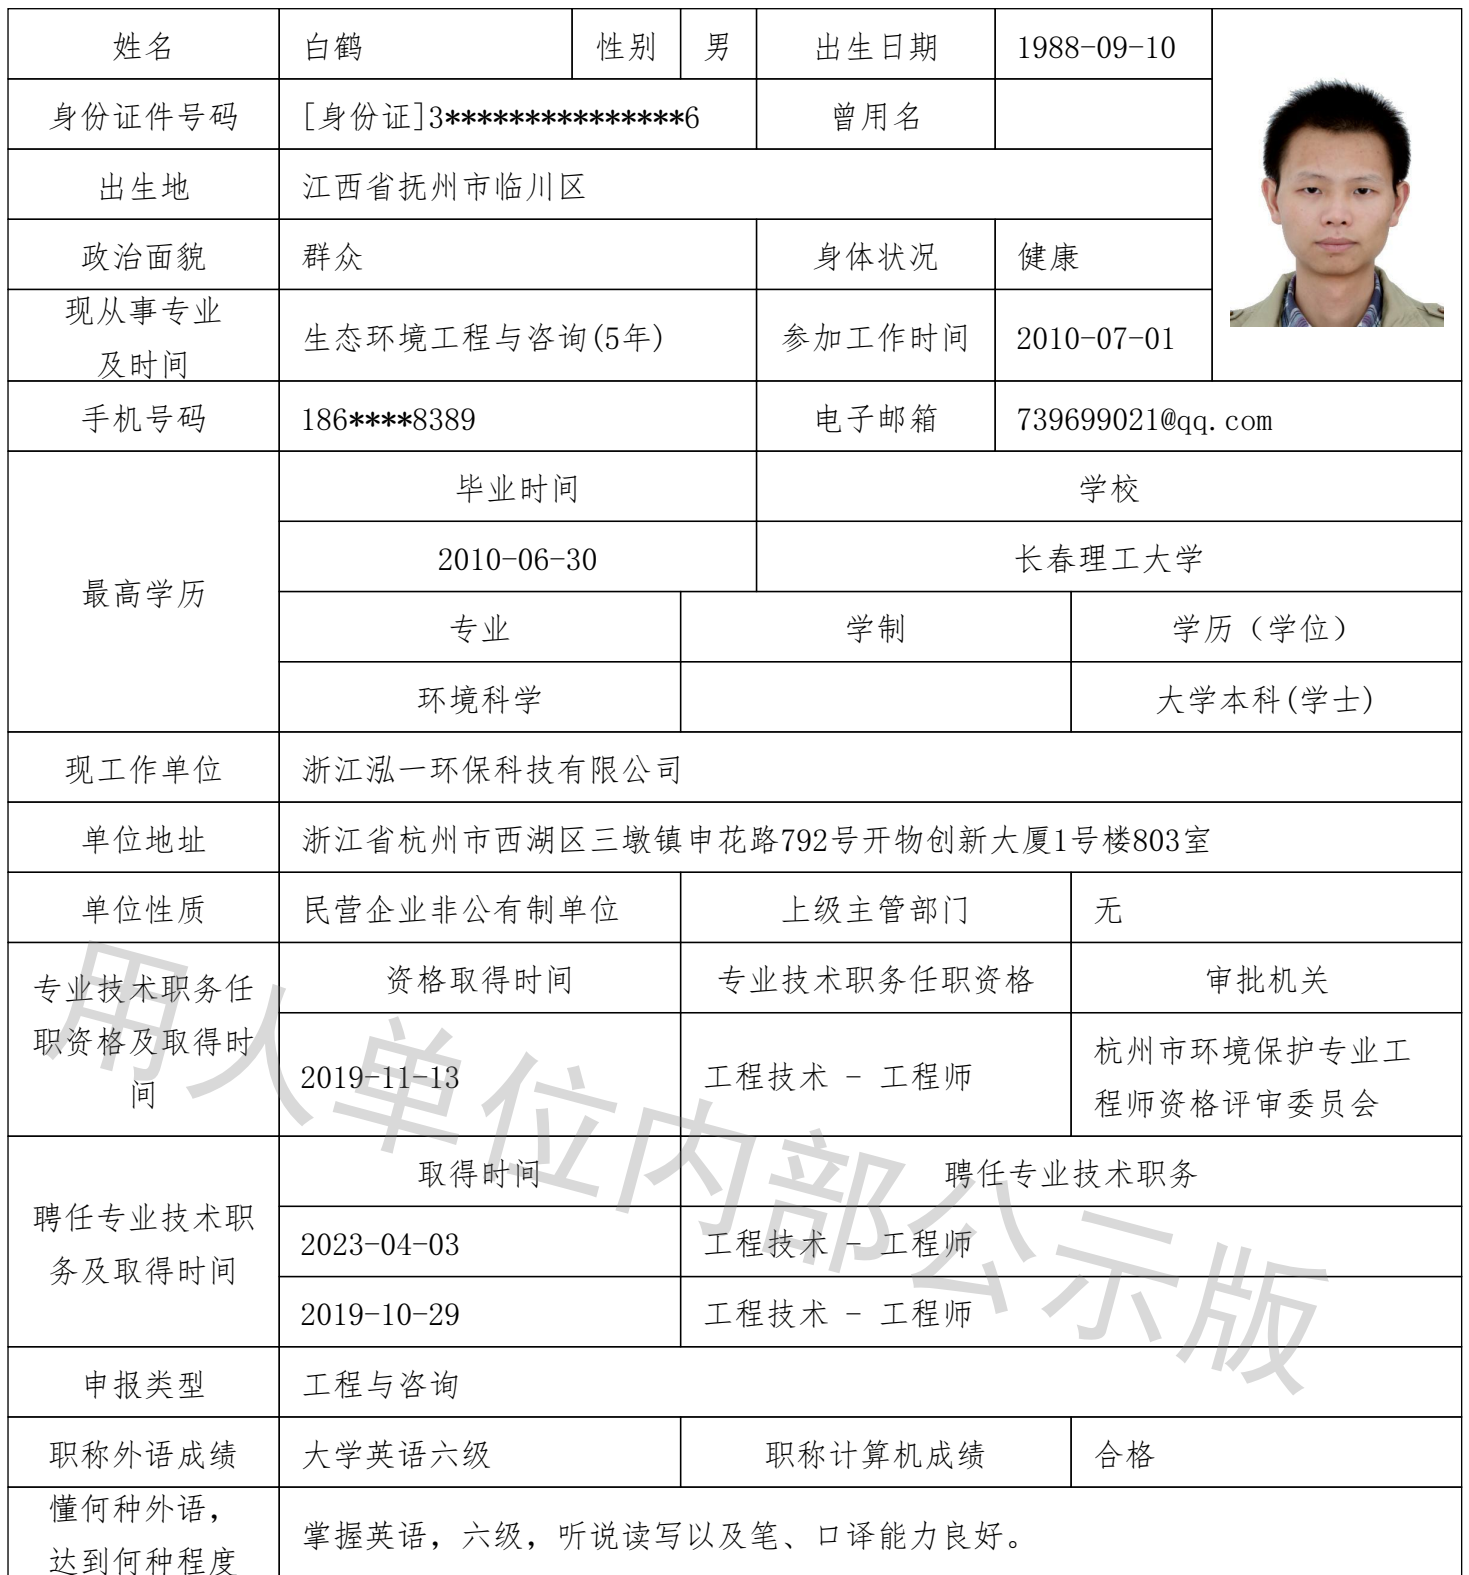 姓名 白鹤 性别 男 出生日期 1988-09-10
身份证件号码 [身份证]3***************6 曾用名
出生地 江西省抚州市临川区
政治面貌 群众 身体状况 健康
现从事专业
及时间
生态环境工程与咨询(5年) 参加工作时间 2010-07-01
手机号码 186****8389 电子邮箱 739699021@qq.com
最高学历
毕业时间 学校
2010-06-30 长春理工大学
专业 学制 学历（学位）
环境科学 大学本科(学士)
现工作单位 浙江泓一环保科技有限公司
单位地址 浙江省杭州市西湖区三墩镇申花路792号开物创新大厦1号楼803室
单位性质 民营企业非公有制单位 上级主管部门 无
专业技术职务任
职资格及取得时
间
资格取得时间 专业技术职务任职资格 审批机关
2019-11-13 工程技术 - 工程师
杭州市环境保护专业工
程师资格评审委员会
聘任专业技术职
务及取得时间
取得时间 聘任专业技术职务
2023-04-03 工程技术 - 工程师
2019-10-29 工程技术 - 工程师
申报类型 工程与咨询
职称外语成绩 大学英语六级 职称计算机成绩 合格
懂何种外语，
达到何种程度
掌握英语，六级，听说读写以及笔、口译能力良好。
用人单位内部公示版